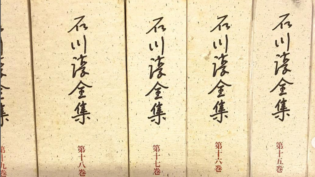 石川淳全集
第十五巻
石川淳全集
第十六巻
石川淳全集
第十七巻
石川淳全集
第十八巻